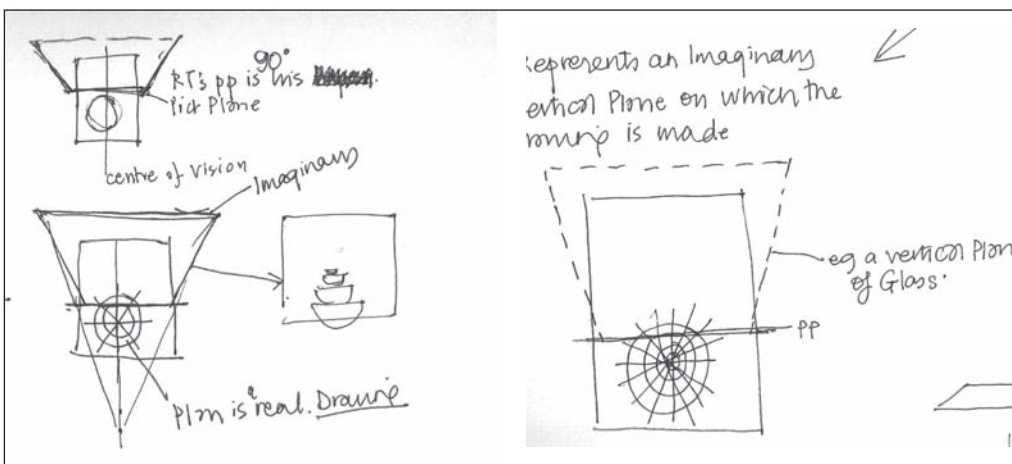 90°
RT's pp is his
Pict Plane
centre of vision
Imaginary
Plan is a real. Drawing
epresents an Imaginary
ertical Plane on which the
rawing is made
eg a vertical Plan
of Glass.
PP